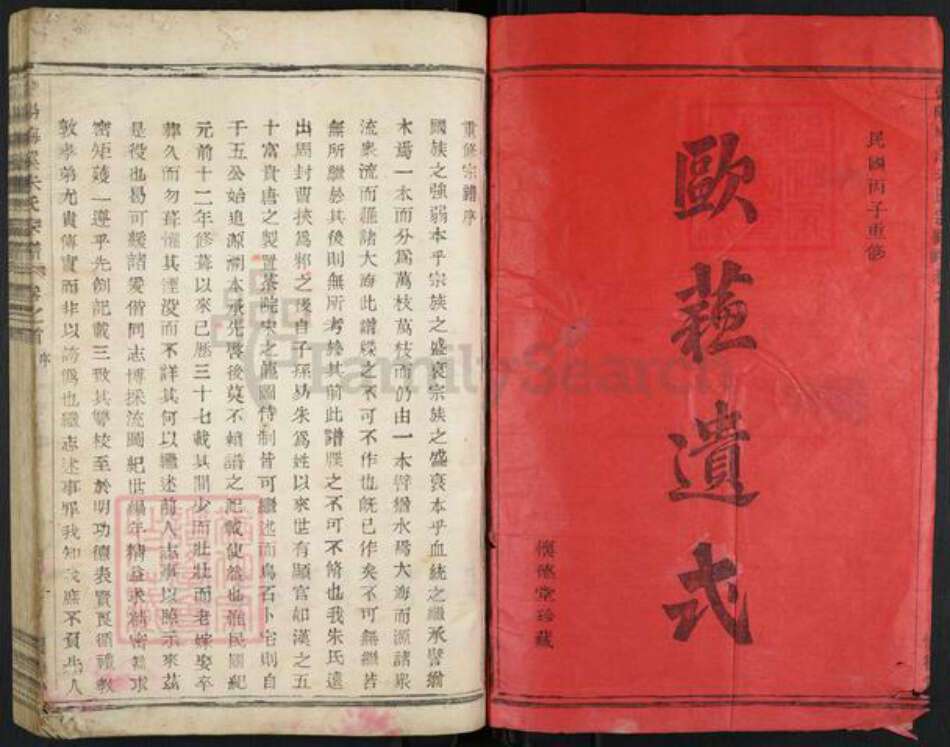 民國丙子重修
歐蘓遺式
懷德堂珍藏
重修宗譜序
國族之強弱本乎宗族之盛衰宗族之盛衰本乎血統之繼承譬猶
木焉一木而分爲萬枝萬枝而仍由一本譬猶水焉大海而源諸眾
流眾流而匯諸大海此譜牒之不可不作也旣已作矣不可無繼苦
無所繼於其後則無所考於其前此譜牒之不可不脩也我朱氏遠
出周封曹挾爲邾之後自子孫易朱爲姓以來世有顯官如漢之五
十富貴唐之製置茶院宋之龍圖待制皆可繼述而烏石小宅則自
千五公始追源溯本承先啓後莫不賴譜之記載使然也雖民國紀
元前十二年修葺以來已歷三十七載其間少而壯壯而老嫁娶卒
葬久而勿葺懼其湮没而不詳其何以繼述前人志事以昭示來茲
是役也曷可緩諸爰偕同志博採流圖紀世編年精益求精密益求
密矩矱一遵乎先例記載三致其讐校至於明功德表賢良循禮敎
敦孝弟尤貴傳實而非以誇僞也繼志述事罪我知我庶不負先人
朱氏宗譜 卷之首 序
FamilySearch